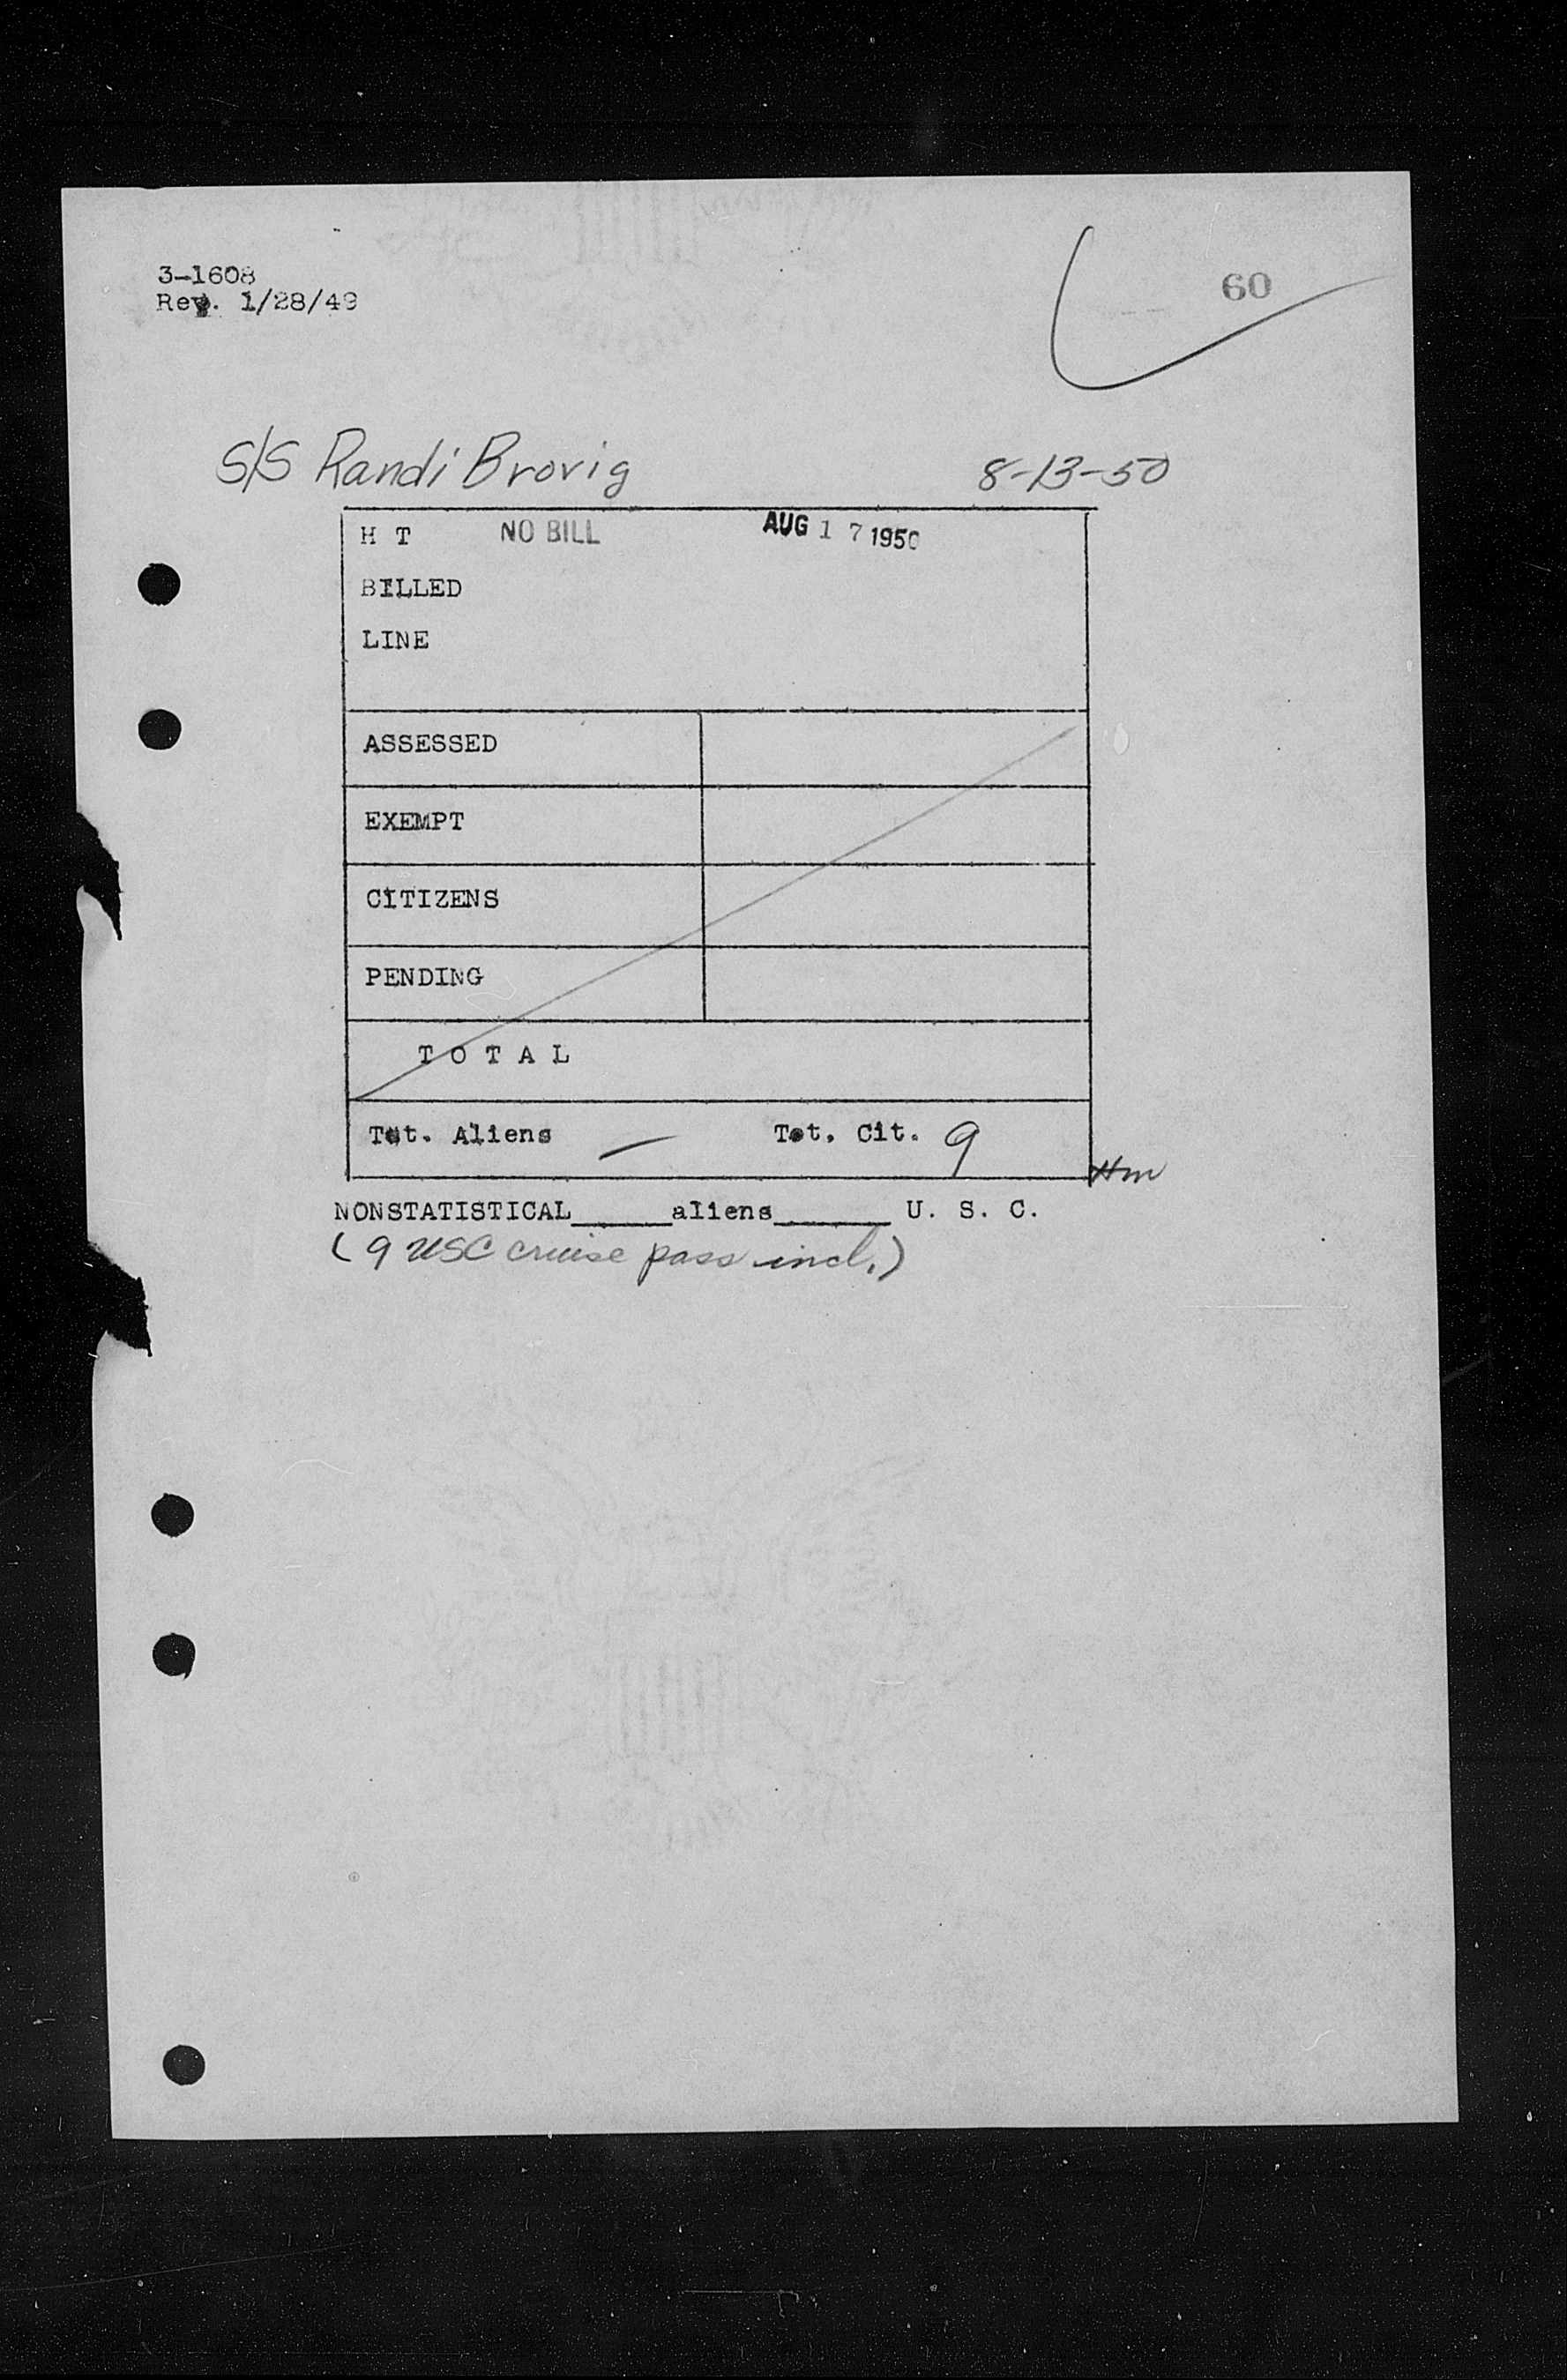 3-1608
60
Rev. 1/28/49
S/S Randi Brovig 8-13-50
H T NO BILL AUG 17 1950
BILLED
LINE
ASSESSED
EXEMPT
CITIZENS
PENDING
T O T A L
Tot. Aliens — Tot. Cit. 9
NONSTATISTICAL_____aliens______ U. S. C.
(9 USC cruise pass incl.)